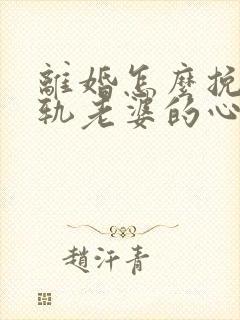 離婚怎麼挽
軌老婆的心
趙汗青